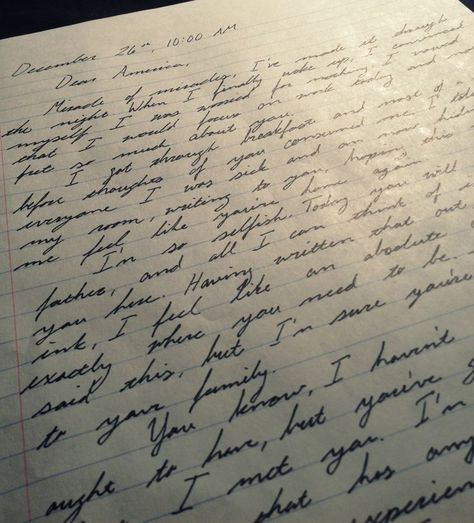 December 26th, 10:00 AM
Dear America,
Miracle of miracles, I've made it through
the night. When I finally woke up, I convinced
myself I was worried for nothing. I vowed
that I would focus on work today and not
fret so much about you.
I got through breakfast and most of a
before thoughts of you consumed me. I told
everyone I was sick and am now hid
my room, writing to you, hoping this
me feel like you're home again.
I'm so selfish. Today you will
father, and all I can think of is
you here. Having written that out
ink, I feel like an absolute
exactly where you need to be.
said this, but I'm sure you're
to your family.
You know, I haven't
ought to have, but you've
I met you. I'm
that has any
experien